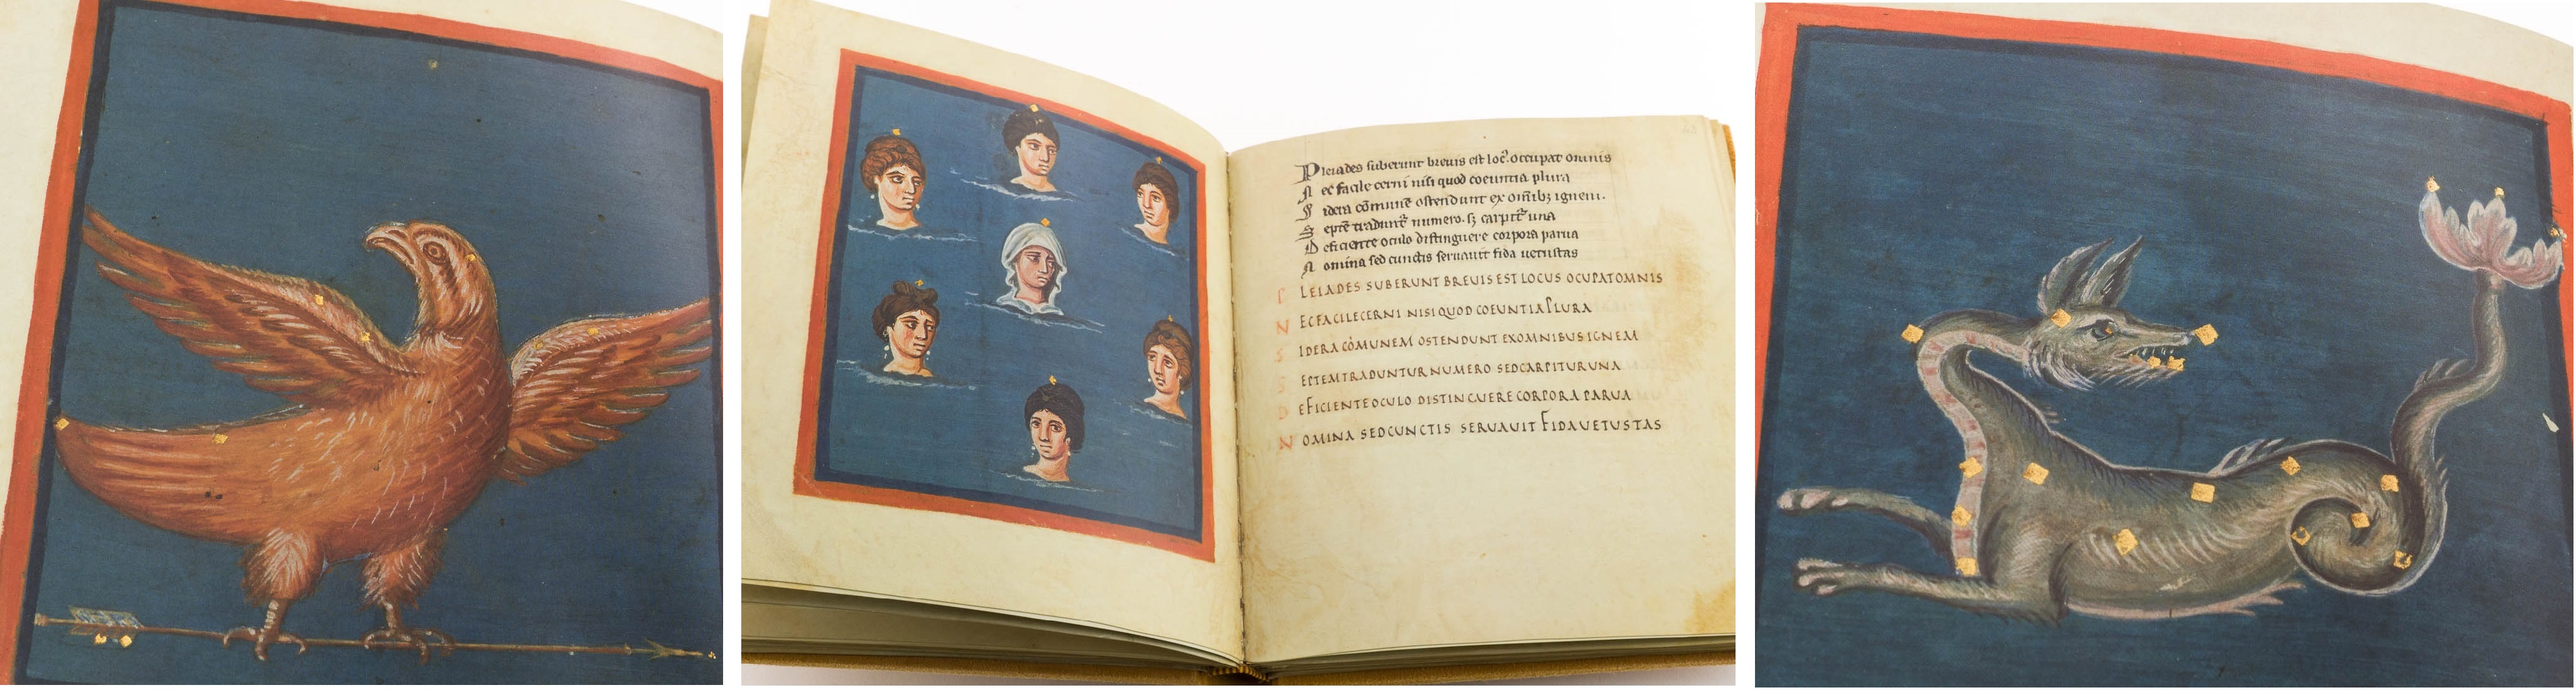 Pleiades suberunt breuis est loc' occupat omnis
Nec facile cerni nisi quod coeuntia plura
Sidera cōmune ostendunt ex om̄ib; ignem.
Septē tradunt᷑ numero. s; carpit᷑ una
Deficiente oculo distinguere corpora parua
Nomina sed cunctis seruauit fida uetustas
PLEIADES SUBERUNT BREUIS EST LOCUS OCUPAT OMNIS
NEC FACILE CERNI NISI QUOD COEUNTIA PLURA
SIDERA CŌMUNEM OSTENDUNT EX OMNIBUS IGNEM
SEPTEM TRADUNTUR NUMERO SED CARPITUR UNA
DEFICIENTE OCULO DISTINGUERE CORPORA PARUA
NOMINA SED CUNCTIS SERUAUIT FIDA UETUSTAS